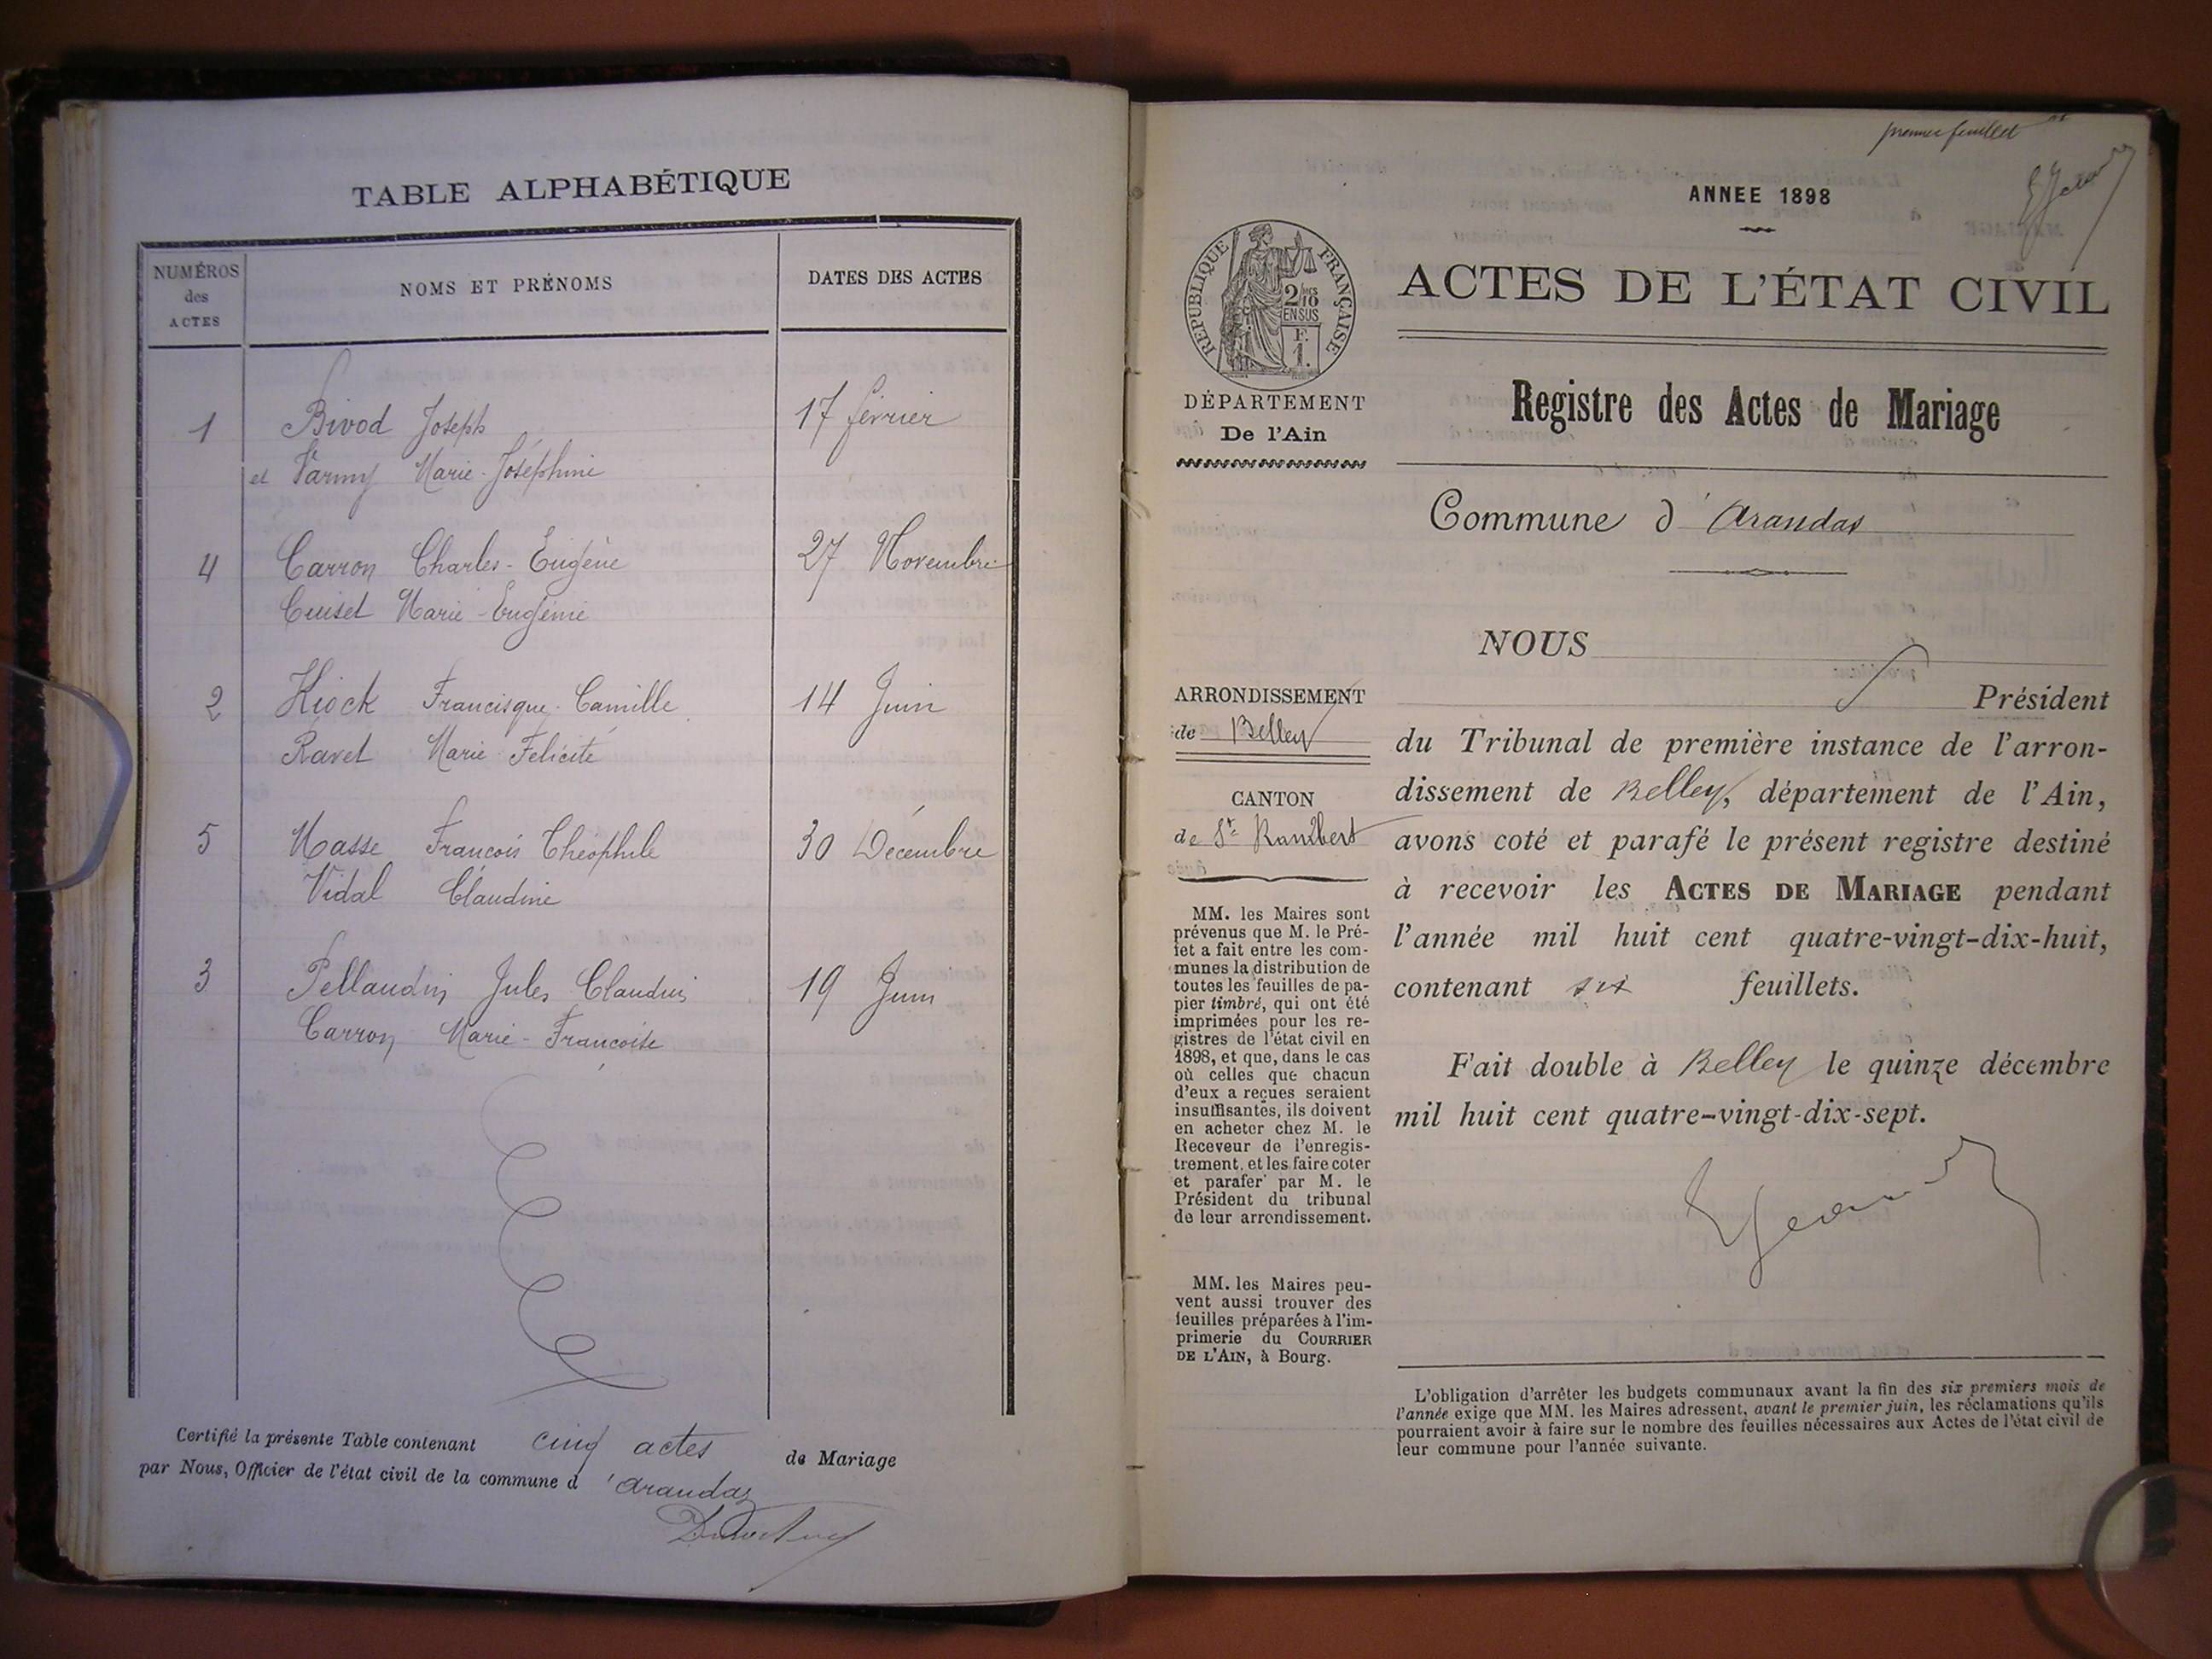 TABLE ALPHABÉTIQUE
NUMÉROS
des
ACTES
NOMS ET PRÉNOMS
DATES DES ACTES
1 Bivod Joseph 17 février
et Varmy Marie-Joséphine
4 Carron Charles-Eugène 27 Novembre
Cuiset Marie-Eugénie
2 Kiock Francisque-Camille 14 Juin
Ravet Marie Felicité
5 Masse François Théophile 30 Décembre
Vidal Claudine
3 Pellaudin Jules Claudius 19 Juin
Carron Marie-Françoise
Certifié la présente Table contenant cinq actes de Mariage
par Nous, Officier de l'état civil de la commune d'Arandas
premier feuillet
ANNEE 1898
REPUBLIQUE FRANÇAISE
2/10
EN SUS
F.
1.
ACTES DE L'ÉTAT CIVIL
DÉPARTEMENT
De l'Ain
Registre des Actes de Mariage
Commune d'Arandas
NOUS
ARRONDISSEMENT
de Belley
CANTON
de St Rambert
MM. les Maires sont
prévenus que M. le Pré-
fet a fait entre les com-
munes la distribution de
toutes les feuilles de pa-
pier timbré, qui ont été
imprimées pour les re-
gistres de l'état civil en
1898, et que, dans le cas
où celles que chacun
d'eux a reçues seraient
insuffisantes, ils doivent
en acheter chez M. le
Receveur de l'enregis-
trement, et les faire coter
et parafer par M. le
Président du tribunal
de leur arrondissement.
MM. les Maires peu-
vent aussi trouver des
feuilles préparées à l'im-
primerie du COURRIER
DE L'AIN, à Bourg.
Président
du Tribunal de première instance de l'arron-
dissement de Belley, département de l'Ain,
avons coté et parafé le présent registre destiné
à recevoir les ACTES DE MARIAGE pendant
l'année mil huit cent quatre-vingt-dix-huit,
contenant six feuillets.
Fait double à Belley le quinze décembre
mil huit cent quatre-vingt-dix-sept.
L'obligation d'arrêter les budgets communaux avant la fin des six premiers mois de
l'année exige que MM. les Maires adressent, avant le premier juin, les réclamations qu'ils
pourraient avoir à faire sur le nombre des feuilles nécessaires aux Actes de l'état civil de
leur commune pour l'année suivante.